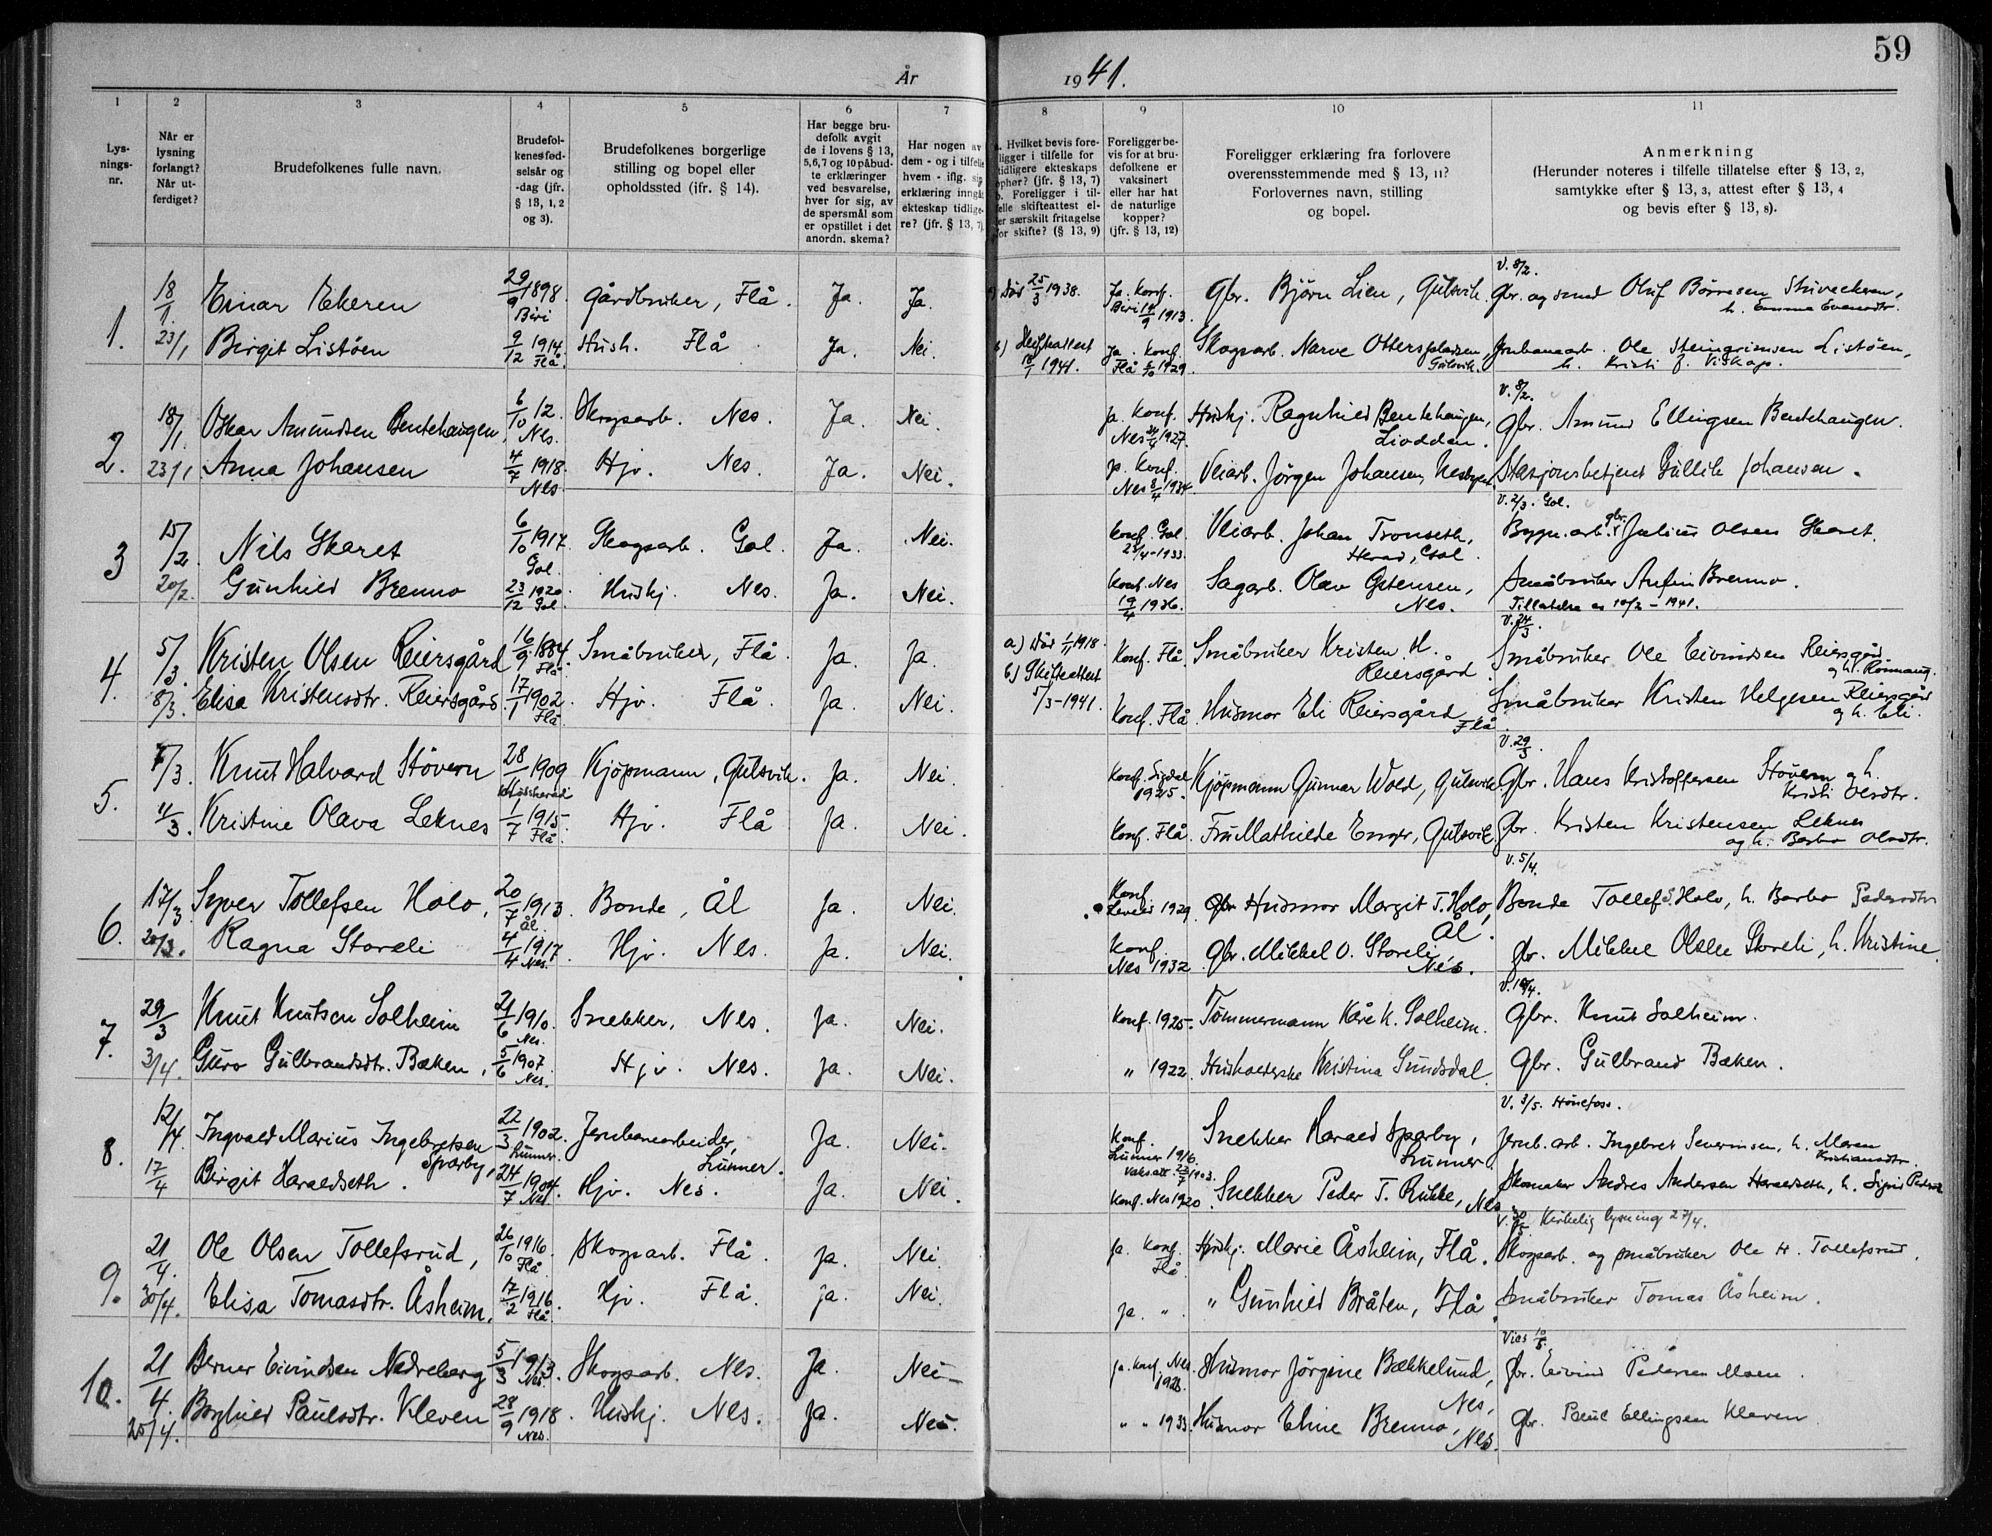 59
År 1941.
1 2 3 4 5 6 7 8 9 10 11
Lys-
nings-
nr.
Når er
lysning
forlangt?
Når ut-
ferdiget?
Brudefolkenes fulle navn.
Brudefol-
kenes fød-
selsår og
-dag (jfr.
§ 13, 1, 2
og 3).
Brudefolkenes borgerlige
stilling og bopel eller
opholdssted (jfr. § 14).
Har begge bru-
defolk avgit
de i lovens § 13,
5, 6, 7 og 10 påbud-
te erklæringer
ved besvarelse,
hver for sig, av
de spørsmål som
er opstillet i det
anordn. skema?
Har nogen av
dem - og i tilfelle
hvem - iflg. sin
erklæring inngått
ekteskap tidlige-
re? (jfr. § 13, 7).
a. Hvilket bevis fore-
ligger i tilfelle for
tidligere ekteskaps
ophør? (jfr. § 13, 7)
b. Foreligger i til-
felle skifteattest el-
ler særskilt fritagelse
for skifte? (§ 13, 9)
Foreligger be-
vis for at bru-
defolkene er
vaksinert
eller har hat
de naturlige
kopper?
(jfr. § 13, 12)
Foreligger erklæring fra forlovere
overensstemmende med § 13, 11?
Forlovernes navn, stilling
og bopel.
Anmerkning
(Herunder noteres i tilfelle tillatelse efter § 13, 2,
samtykke efter § 13, 3, attest efter § 13, 4
og bevis efter § 13, 8).
V. 8/2.
1. 18/1. Einar Ekeren 29/9 1898. Biri Gårdbruker, Flå. Ja. Ja. Död 25/3 1938. Ja. Konf. Biri 1913. Gbr. Björn Lien, Gulsvik. Gbr. og smed Oluf Børresen
h. Emma Evensdtr.
23/1 Birgit Listöen 9/12 1914. Flå. Hush. Flå. Ja. Nei. b) Skifteattest 1941. Ja. Konf. Flå 1929. Skogsarb. Narve Gulsvik. Jernbanearb. Ole Steingrimsen Listöen,
h. Kristi
V. 8/2.
2. 18/1. Oskar Amundsen Bentehaugen, 6/10 12. Nes. Skogsarb. Nes. Ja. Nei. Ja. Konf. Nes 1927. Huskj. Ragnhild Bentehaugen, Liodden. Gbr. Amund Ellingsen Bentehaugen.
23/1 Anna Johansen 4/7 1918. Nes. Hjv. Nes. Ja. Nei. Ja. Konf. Nes 1934. Veiarb. Jörgen Johansen, Nesbyen. Stasjonsbetjent Gullik Johansen.
V. 2/3. Gol.
3 15/2. Nils Skaret 6/10 1917. Gol. Skogsarb. Gol. Ja. Nei. Konf. Gol 23/4-1933. Veiarb. Johan Tronseth, Herad, Gol. Bygn.arb. gbr. Julius Olsen Skaret.
20/2. Gunhild Brenno 23/12 1920. Gol. Huskj. Nes. Ja. Nei. Konf. Nes 19/4 1936. Sagarb. Olav Nes. Småbruker Anfin Brenno.
Tillatelse av 10/2-1941.
V. 24/3.
4. 5/3. Kristen Olsen Reiersgård 16/9 1884. Flå. Småbruker, Flå. Ja. Ja. a) Död 1/1 1918. Konf. Flå Småbruker Kristen H. Reiersgård. Småbruker Ole Eivindsen Reiersgård
og h. Rönnaug.
8/3. Elisa Kristensdtr. Reiersgård 17/1 1902. Flå Hjv. Flå. Ja. Nei. b) Skifteattest 5/3-1941. Konf. Flå Husmor Eli Reiersgård Flå Småbruker Kristen Helgesen Reiersgård
og h. Eli.
V. 29/3.
5. 7/3. Knut Halvard Stövern 28/1 1909 Krödsherad Kjöpmann, Gulsvik. Ja. Nei. Konf. Sigdal 1925. Kjöpmann Gunnar Wold, Gulsvik. Gbr. Hans Kristoffersen Stövern og h.
Kristi Olsdtr.
11/3. Kristine Olava Leknes 1/7 1915. Flå. Hjv. Flå Ja. Nei. Konf. Flå. Fru Mathilde Enger, Gulsvik. Gbr. Kristen Kristensen Leknes
og h. Barbo Olsdtr.
V. 5/4.
6. 17/3. Syver Tollefsen Holo, 20/7 1913. Ål. Bonde, Ål Ja. Nei. Konf. Leveld 1929. Husmor Margit T. Holo, Ål. Bonde Tollef S. Holo, h. Barbo Pedersdtr
20/3. Ragna Storeli 4/4 1917. Nes. Hjv. Nes. Ja. Nei. Konf. Nes 1932. Gbr. Mikkel O. Storeli Nes. Gbr. Mikkel Olsen Storeli, h. Kristine
7. 29/3 Knut Knutsen Solheim 21/6 1910. Nes. Snekker, Nes. Ja. Nei. Konf. 1925. Tömmermann Kåre K. Solheim. Gbr. Knut Solheim.
3/4. Guro Gulbrandsdtr. Bæken, 5/6 1907. Nes. Hjv. Nes. Ja. Nei. " 1922. Husholderske Kristina Sundsdal. Gbr. Gulbrand Bæken.
V. 3/5. Hönefoss.
8. 12/4. Ingvald Marius Ingebretsen Sparby, 22/3 1902. Lunner. Jernbanearbeider, Lunner. Ja. Nei. Konf. Lunner 1916. Snekker Harald Sparby, Lunner. Jernb. arb. Ingebret Severinsen, h. Maren
Kristiansdtr.
17/4 Birgit Haraldseth. 24/7 1904. Nes. Hjv. Nes. Ja. Nei. Konf. Nes 1920. Snekker Peder T. Rukke, Nes. Skomaker Andres Andersen Haraldseth, h. Sigrid
Kirkelig lysning 27/4.
9. 21/4. Ole Olsen Tollefsrud, 26/10 1916. Flå Skogsarb. Flå. Ja. Nei. Ja. Konf. Flå Huskj. Marie Åsheim, Flå. Skogsarb. og småbruker Ole H. Tollefsrud.
30/4. Elisa Tomasdtr. Åsheim, 17/2 1916. Flå. Hjv. Flå. Ja. Nei. Ja. " " Gunhild Bråten, Flå. Småbruker Tomas Åsheim.
Vies 10/5.
10. 21/4. Berner Eivindsen Nedreberg 5/3 1913. Nes. Skogsarb. Nes. Ja. Nei Ja. Konf. Nes 1928. Husmor Jörgine Bækkelund, Nes, Gbr. Eivind Pedersen Moen.
25/4. Borghild Paulsdtr. Kleven 28/9 1918. Nes. Huskj. Nes. Ja. Nei. " " 1933. Husmor Eline Brenno, Nes. Gbr. Paul Ellingsen Kleven.